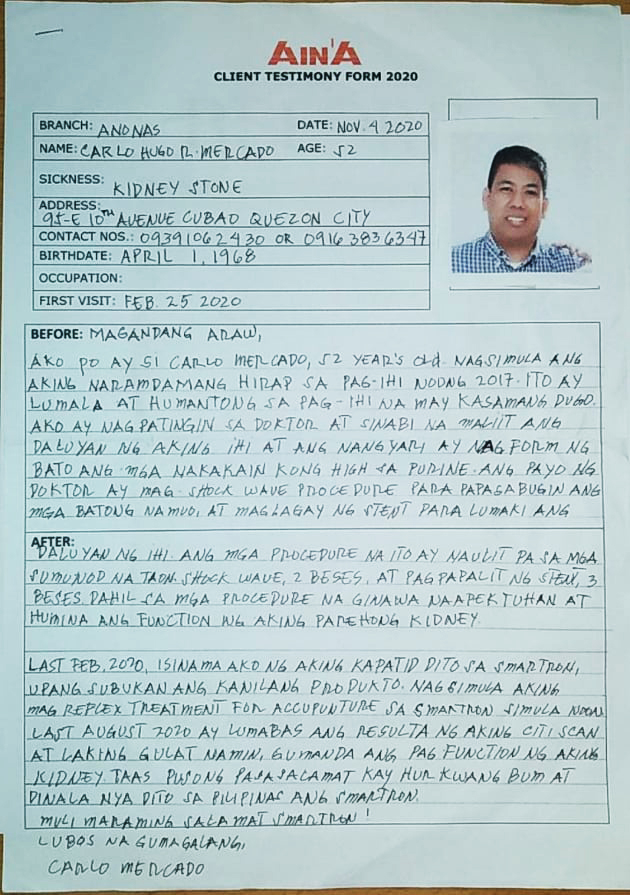 AIN'A
CLIENT TESTIMONY FORM 2020
BRANCH: ANONAS DATE: NOV. 4 2020
NAME: CARLO HUGO R. MERCADO AGE: 52
SICKNESS: KIDNEY STONE
ADDRESS:
95-E 10TH AVENUE CUBAO QUEZON CITY
CONTACT NOS.: 09391062430 OR 09163836347
BIRTHDATE: APRIL 1, 1968
OCCUPATION:
FIRST VISIT: FEB. 25 2020
BEFORE: MAGANDANG ARAW,
AKO PO AY SI CARLO MERCADO, 52 YEAR'S Old. NAGSIMULA ANG
AKING NARAMDAMANG HIRAP SA PAG-IHI NOONG 2017. ITO AY
LUMALA AT HUMANTONG SA PAG-IHI NA MAY KASAMANG DUGO.
AKO AY NAGPATINGIN SA DOKTOR AT SINABI NA MALIIT ANG
DALUYAN NG AKING IHI AT ANG NANGYARI AY NAG FORM NG
BATO ANG MGA NAKAKAIN KONG HIGH SA PURINE. ANG PAYO NG
DOKTOR AY MAG-SHOCK WAVE PROCEDURE PARA PAPASABUGIN ANG
MGA BATONG NAMUO, AT MAGLAGAY NG STENT PARA LUMAKI ANG
AFTER:
DALUYAN NG IHI. ANG MGA PROCEDURE NA ITO AY NAULIT PA SA MGA
SUMUNOD NA TAON. SHOCK WAVE, 2 BESES, AT PAGPAPALIT NG STENT, 3
BESES. DAHIL SA MGA PROCEDURE NA GINAWA NAAPEKTUHAN AT
HUMINA ANG FUNCTION NG AKING PAREHONG KIDNEY.
LAST FEB. 2020, ISINAMA AKO NG AKING KAPATID DITO SA SMARTRON,
UPANG SUBUKAN ANG KANILANG PRODUKTO. NAGSIMULA AKING
MAG REPLEX TREATMENT FOR ACCUPUNTURE SA SMARTRON SIMULA NOON.
LAST AUGUST 2020 AY LUMABAS ANG RESULTA NG AKING CITI SCAN
AT LAKING GULAT NAMIN, GUMANDA ANG PAG FUNCTION NG AKING
KIDNEY. TAAS PUSONG PASASALAMAT KAY HUR KWANG BUM AT
DINALA NYA DITO SA PILIPINAS ANG SMARTRON.
MULI MARAMING SALAMAT SMARTRON!
LUBOS NA GUMAGALANG,
CARLO MERCADO